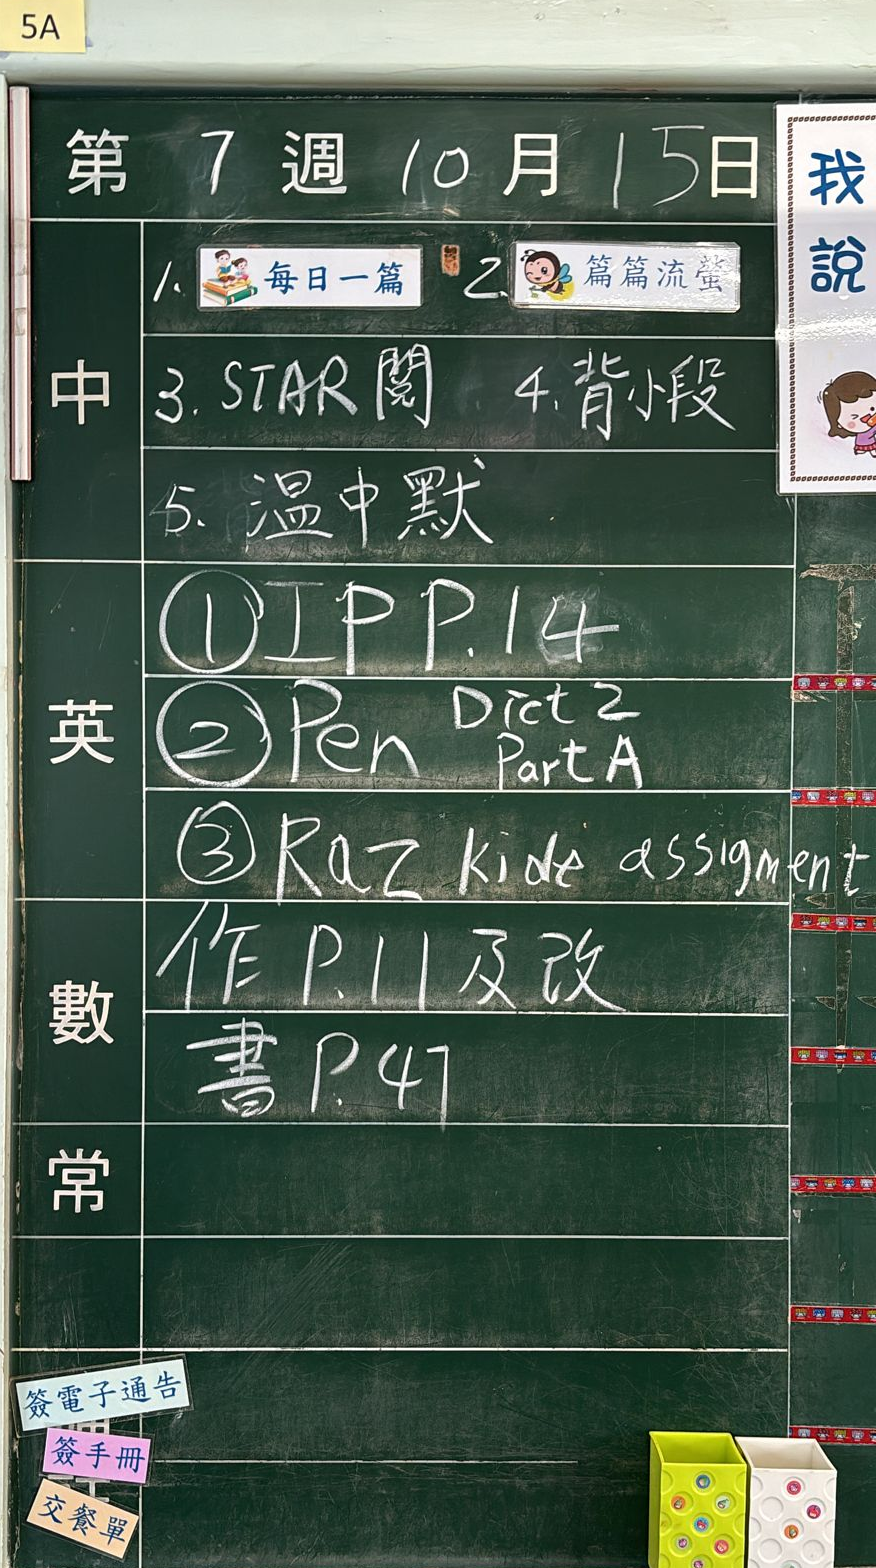 5A
第 7 週 10 月 15 日
我說
中
1. 每日一篇 2. 篇篇流螢
3. STAR閱 4. 背小段
5. 溫中默
英
① IP P.14
② Pen Dict 2 Part A
③ Raz kids assigment
數
作 P.11 及改
書 P.47
常
簽電子通告
簽手冊
交餐單